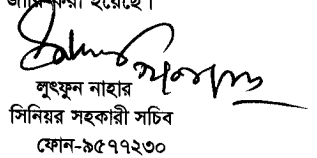 জারি করা হয়েছে।
লুৎফুন নাহার
সিনিয়র সহকারী সচিব
ফোন-৯৫৭৭২৩০